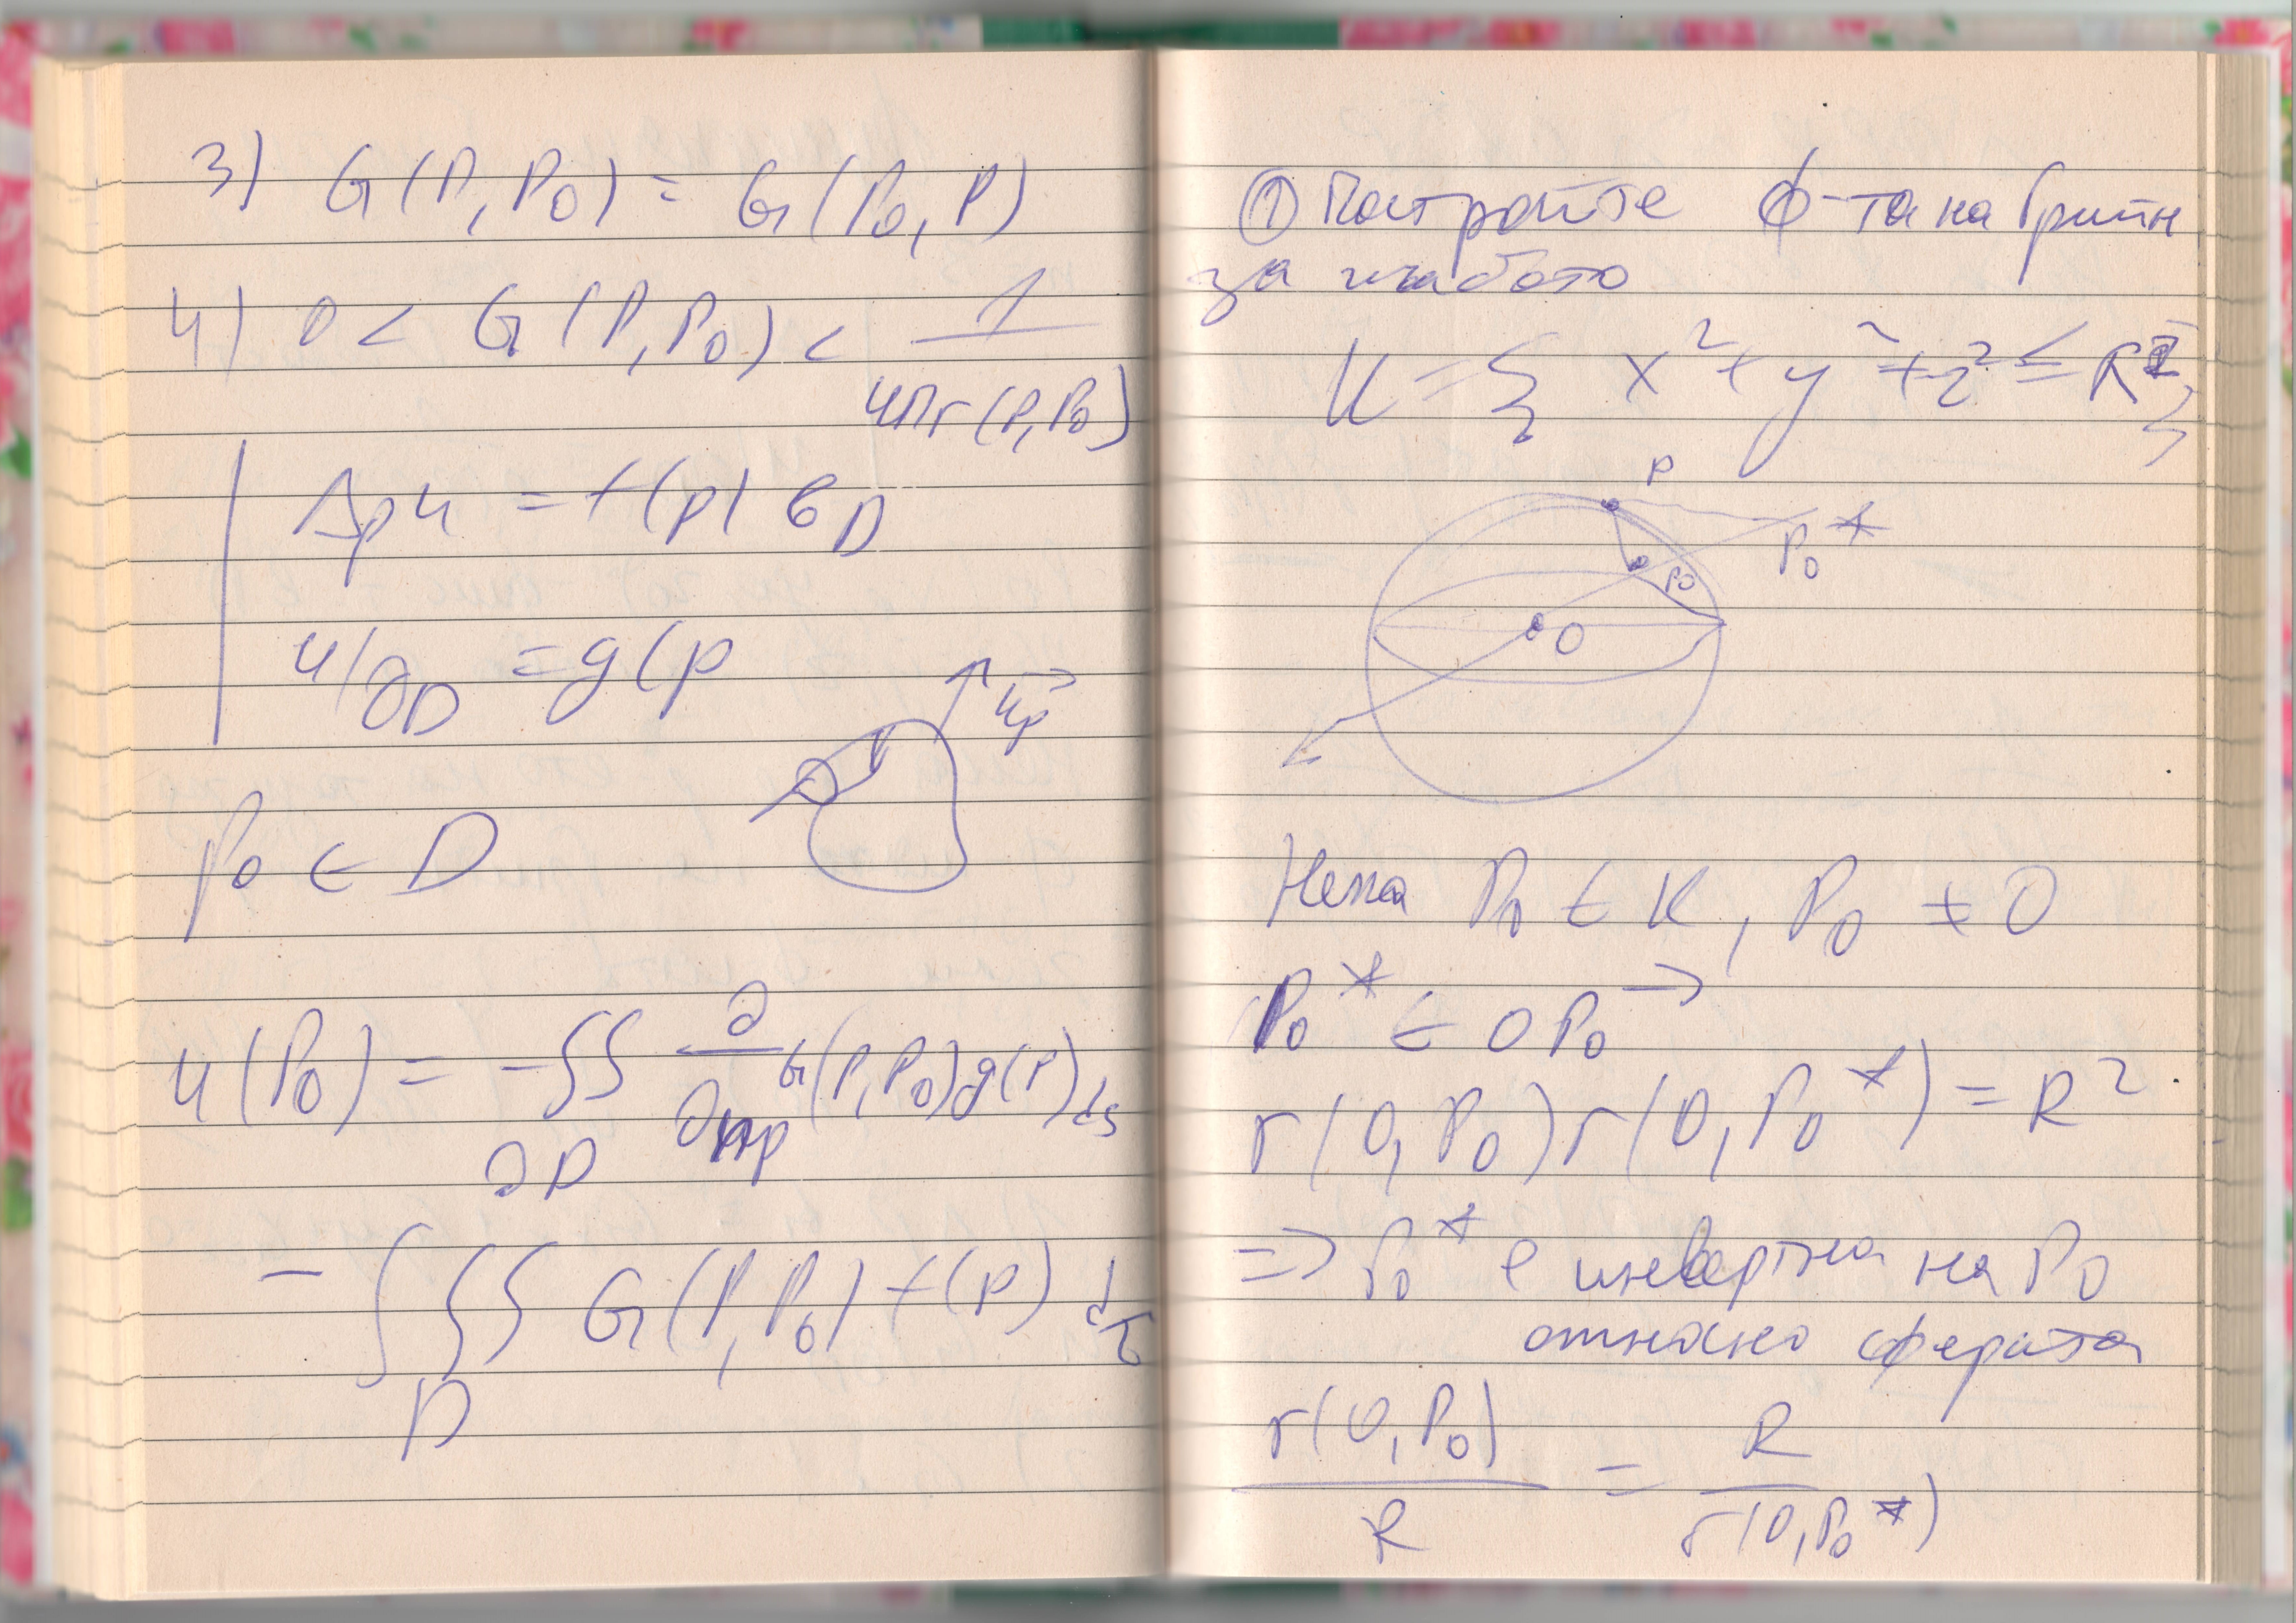 3) G(P, P₀) = G(P₀, P)
4) 0 < G(P, P₀) < 1 / 4πr(P, P₀)
Δₚu = f(P) в D
u/∂D = g(p
n⃗p
P₀ ∈ D
u(P₀) = -∬ ∂D ∂/∂np G(P, P₀) g(P) ds
- ∭ D G(P, P₀) f(P) dτ
① Постройте ф-та на Грийн
за кълбото
K = { x² + y² + z² ≤ R² }
P
P₀*
P₀
O
Нека P₀ ∈ K, P₀ ≠ O
P₀* ∈ OP₀→
r(O, P₀) r(O, P₀*) = R²
=> P₀* е инвертна на P₀
относно сферата
r(O, P₀) / R = R / r(O, P₀*)